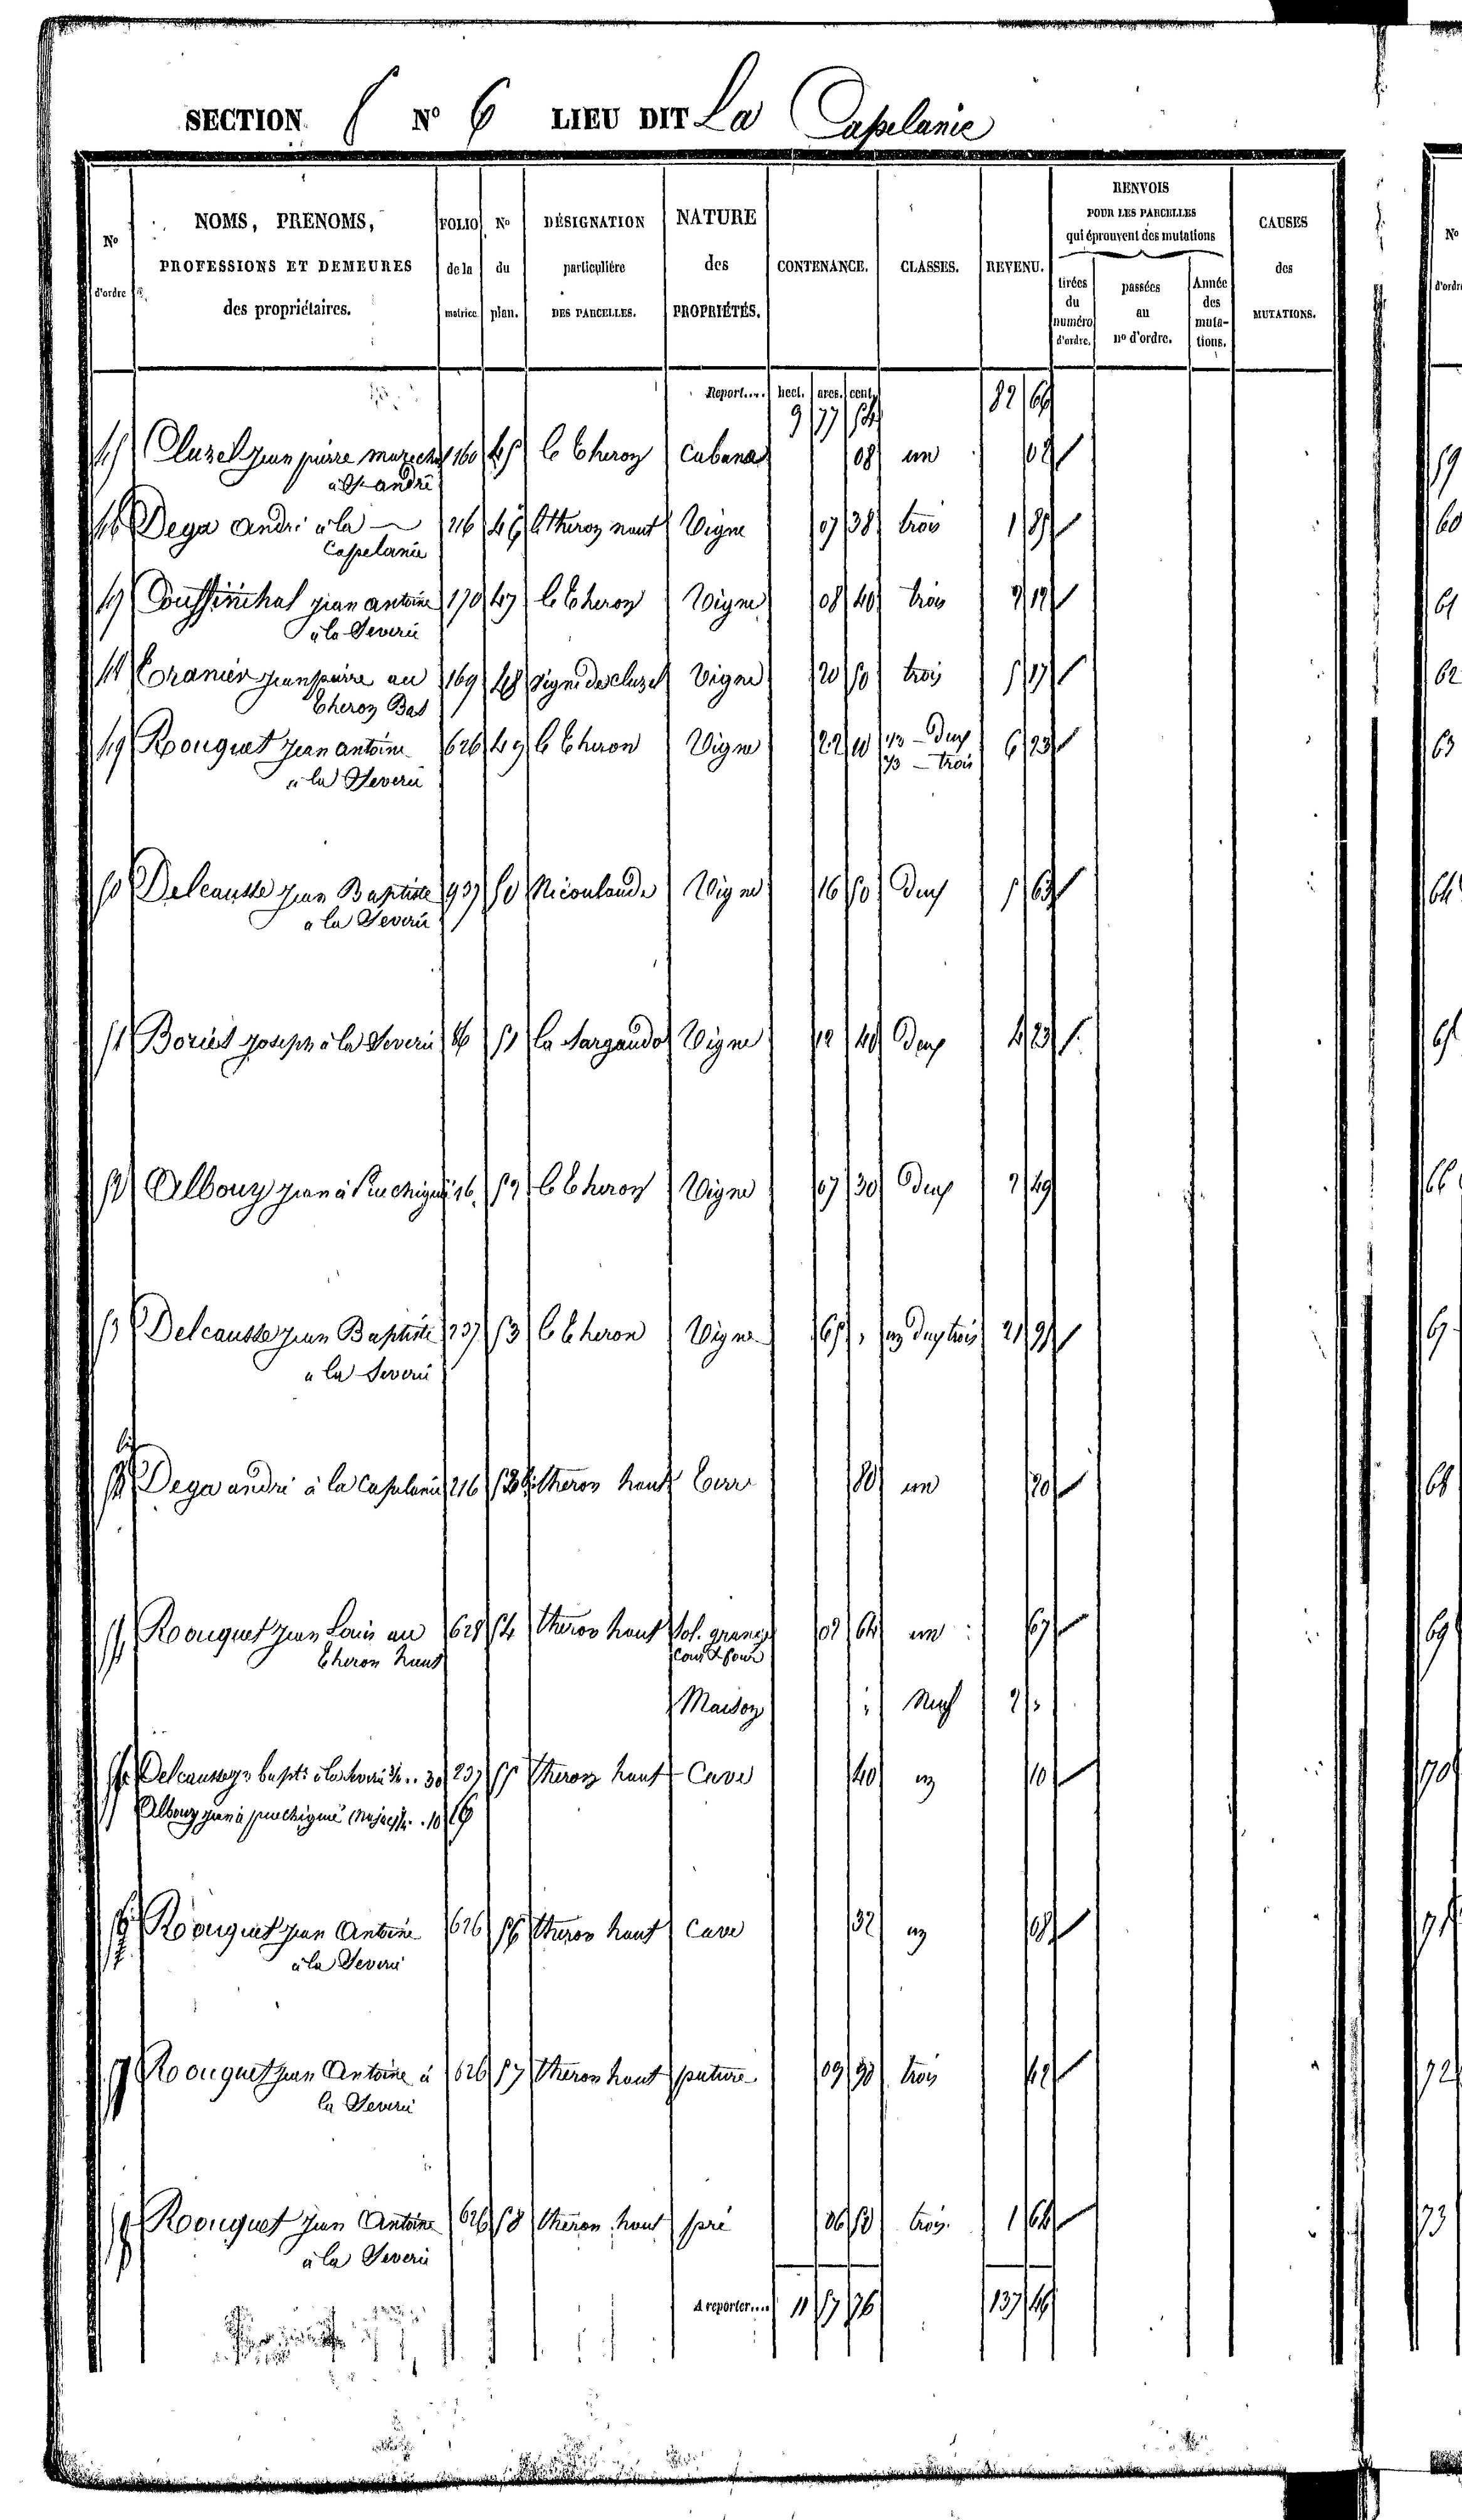 SECTION C N° 6 LIEU DIT La Capelanie
N° d'ordre
NOMS, PRENOMS, PROFESSIONS ET DEMEURES des propriétaires.
FOLIO de la matrice
N° du plan.
DÉSIGNATION particulière DES PARCELLES.
NATURE des PROPRIÉTÉS.
CONTENANCE.
CLASSES.
REVENU.
RENVOIS POUR LES PARCELLES qui éprouvent des mutations
tirées du numéro d'ordre.
passées au n° d'ordre.
Année des mutations.
CAUSES des MUTATIONS.
Report.... hect. ares. cent. 82 66
9 77 54
45 Cluzel jean pierre marechal 160 45 le Theron Cabane 08 un 02
à St andré
46 Dega andré à la 216 46 le theron haut Vigne 07 38 trois 1 85
Capelanie
47 Coussinihal jean antoine 170 47 le Theron Vigne 08 40 trois 2 12
à la Severie
48 jean pierre au 169 48 vigne de cluzel Vigne 20 50 trois 5 17
Theron Bas
49 Rouquet jean antoine 626 49 le Theron Vigne 22 10 1/3 - deux 6 23
à la Severie 2/3 - trois
50 Delcausse jean Baptiste 237 50 Vigne 16 50 deux 5 63
a la Severie
51 Boriés joseph à la Severie 86 51 Vigne 12 40 deux 4 23
52 Albouy jean à Puechigné 16 52 le Theron Vigne 07 30 deux 2 49
53 Delcausse jean Baptiste 237 53 le theron Vigne 65 " un deux trois 21 91
a la Severie
54 Dega andré à la Capelanie 216 53 bis theron haut terre 80 un 20
55 Rouquet jean Louis au 628 54 theron haut sol. grange 02 64 un 67
theron haut cour & four
Maison " neuf 2 "
56 Delcausse 30 237 55 theron haut Cave 40 un 10
Albouy jean à puechigné 10 16
56 Rouquet jean Antoine 626 56 theron haut Cave 32 un 08
à la Severie
57 Rouquet jean Antoine à 626 57 theron haut pature 09 90 trois 62
la Severie
58 Rouquet jean Antoine 626 58 theron haut pré 06 50 trois 1 64
à la Severie
A reporter.... 11 57 76 137 46
N° d'ordre
59
60
61
62
63
64
65
66
67
68
69
70
71
72
73